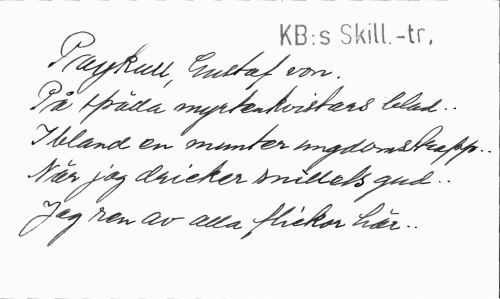 KB:s Skill.-tr.
Paykull, Gustaf von.
På späda myrtenkvistars blad..
Ibland en munter ungdomstrapp..
När jag dricker snillets gud..
Jag ren av alla flickor här..